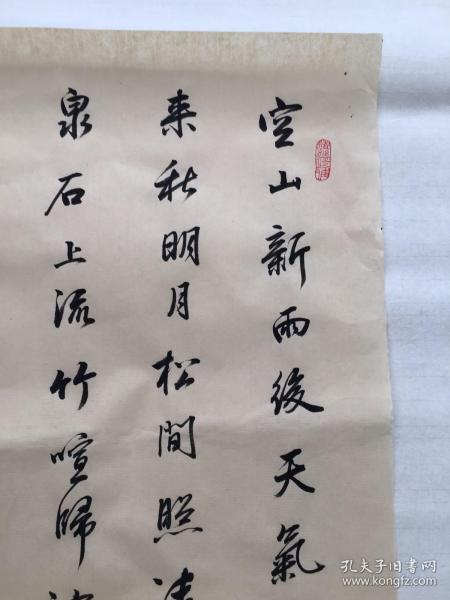 空山新雨後天氣
来秋明月松間照清
泉石上流竹喧歸浣
孔夫子旧书网
www.kongfz.com